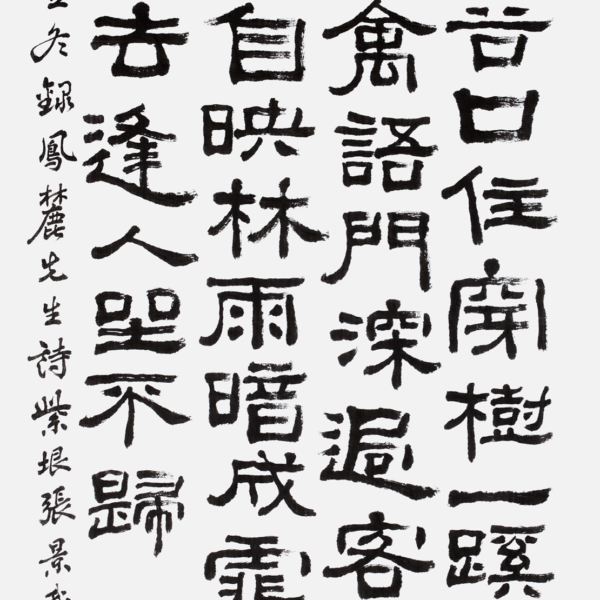 谷口住穿樹一蹊
禽語門深過客
自映林雨暗成霏
去逢人坐不歸
冬録鳳麓先生詩紫垠張景